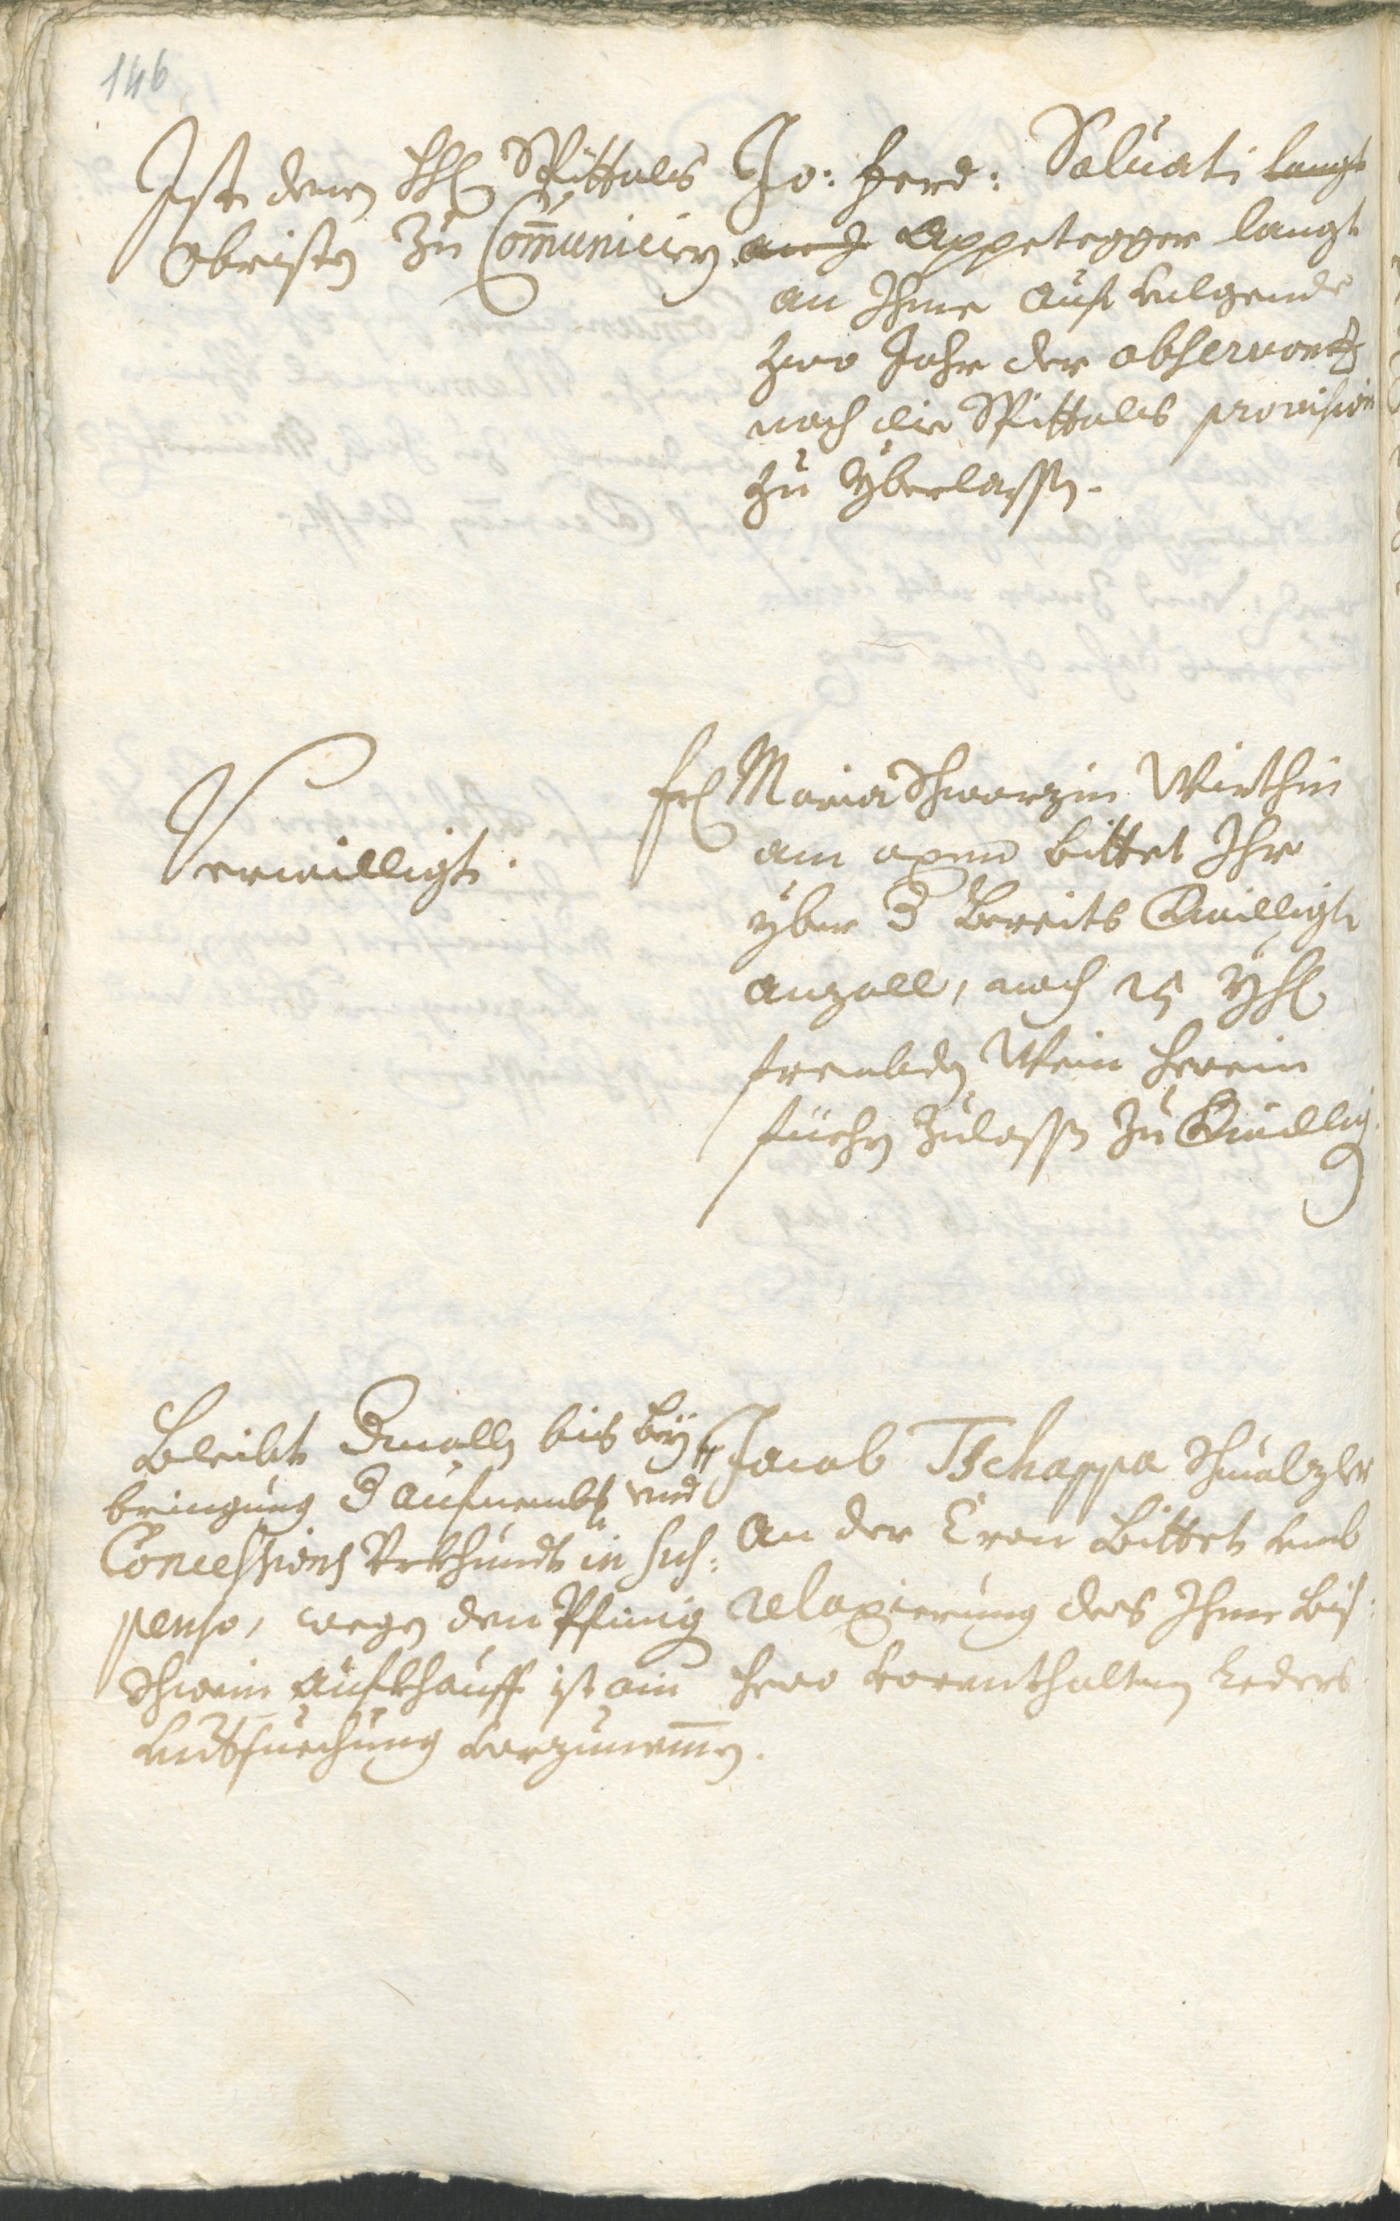 146
Ist denen HH Spittals
Obristen zu Communiciern
Jo: Ferd: Saluati langt
auch Appetegger langt
an Ihme auf volgende
zwo Jahr der observantz
nach die Spittals provision
zu yberlassen.
Verwilligt.
Fr Maria Schwarzin Würthin
am axen bittet Ihr
yber d bereits Verwilligte
anzall, noch 25 Yhl
frembden Wein herein
füehrn zulassen zu Verwillig
Bleibt dermalln bis bey
bringung d aufnembs und
Concessions Urkhundt in sus:
penso, wegen den Pfinnig
Schwein aufkhauff ist ain
undtersuechung vorzunemmen.
Jacob Tschappa Schmalzler
an der Eron bittet umb
relaxierung des Ihme bis:
hero vorenthaltnen Leders